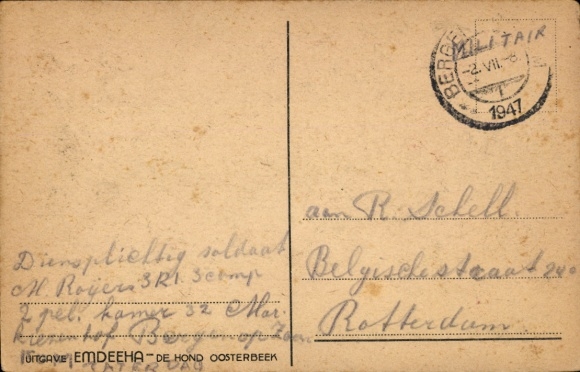 MILITAIR
BERGE
-2.VII.-8
1947
aan R. Schell.
Belgischestraat 24a
Rotterdam.
Diensplichtig soldaat
M Royers 3RI 3comp
2 pel. kamer 32 Mar.
hof Bergen op Zoom
UITGAVE EMDEEHA - DE HOND OOSTERBEEK